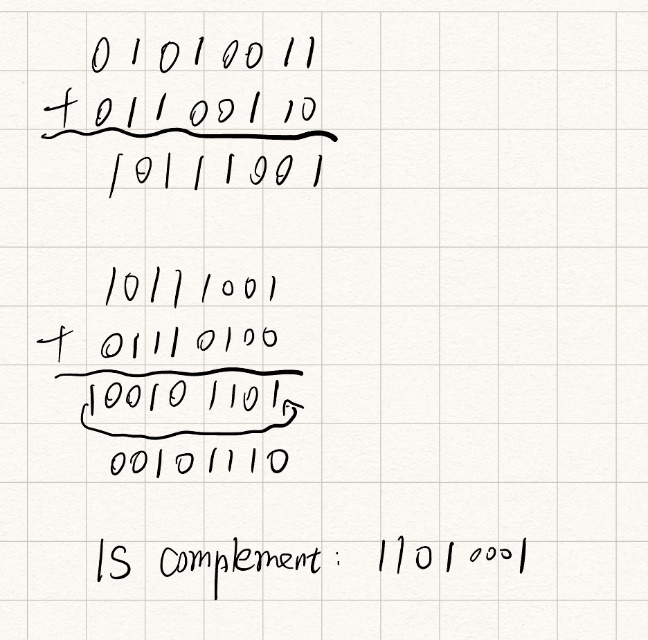 01010011
+ 01100110
10111001
10111001
+ 01110100
100101101
00101110
1S complement: 11010001